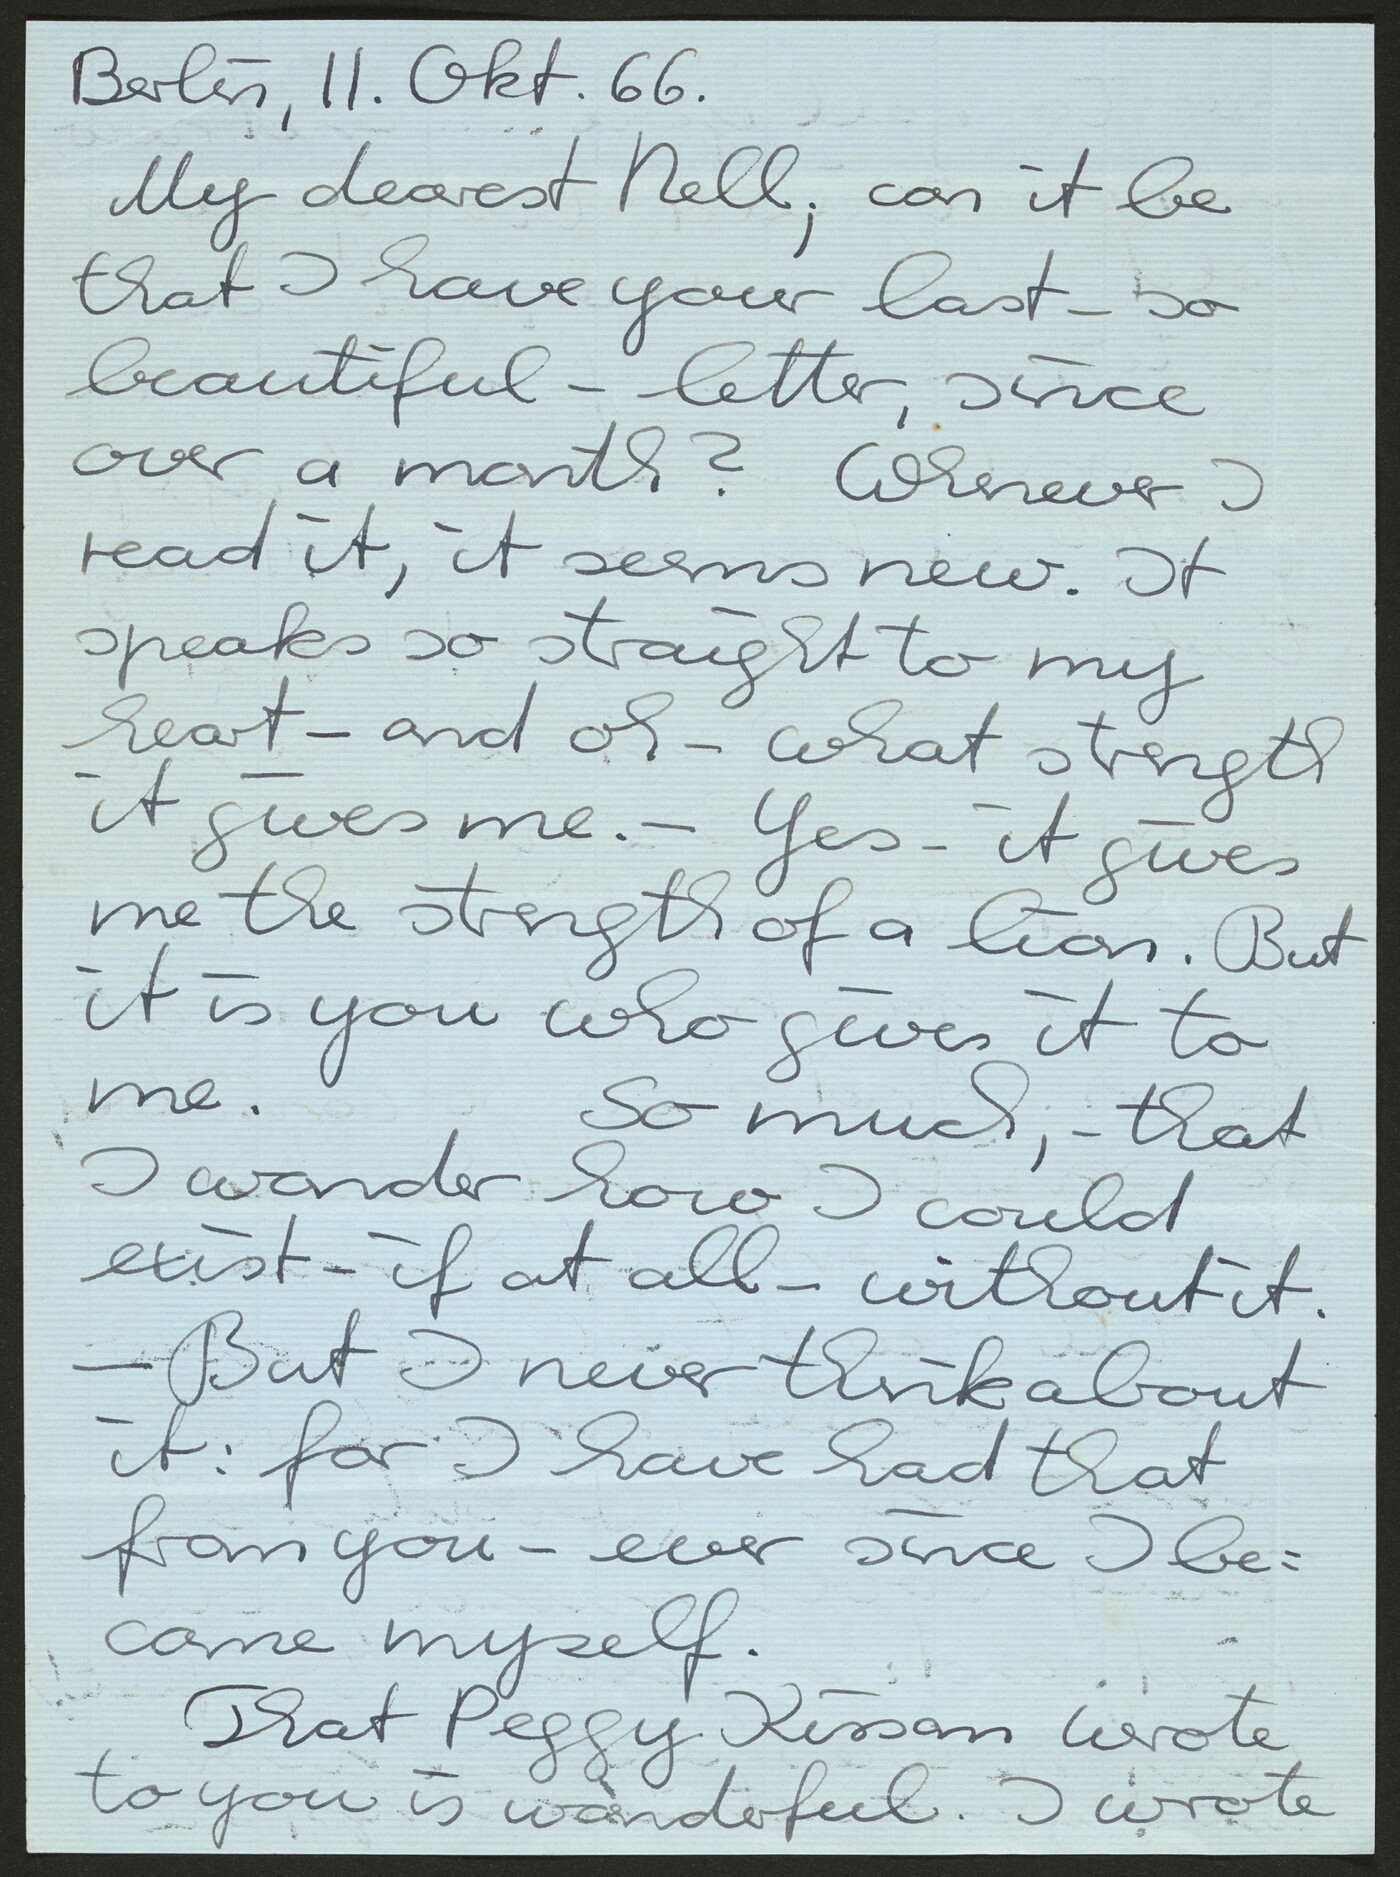 Berlin, 11. Okt. 66.
My dearest Nell, can it be
that I have your last – so
beautiful – letter, since
over a month? Whenever I
read it, it seems new. It
speaks so straight to my
heart – and oh – what strength
it gives me. – Yes – it gives
me the strength of a lion. But
it is you who gives it to
me. So much, – that
I wonder how I could
exist – if at all – without it.
— But I never think about
it: for I have had that
from you – ever since I be=
came myself.
That Peggy Kissam wrote
to you is wonderful. I wrote